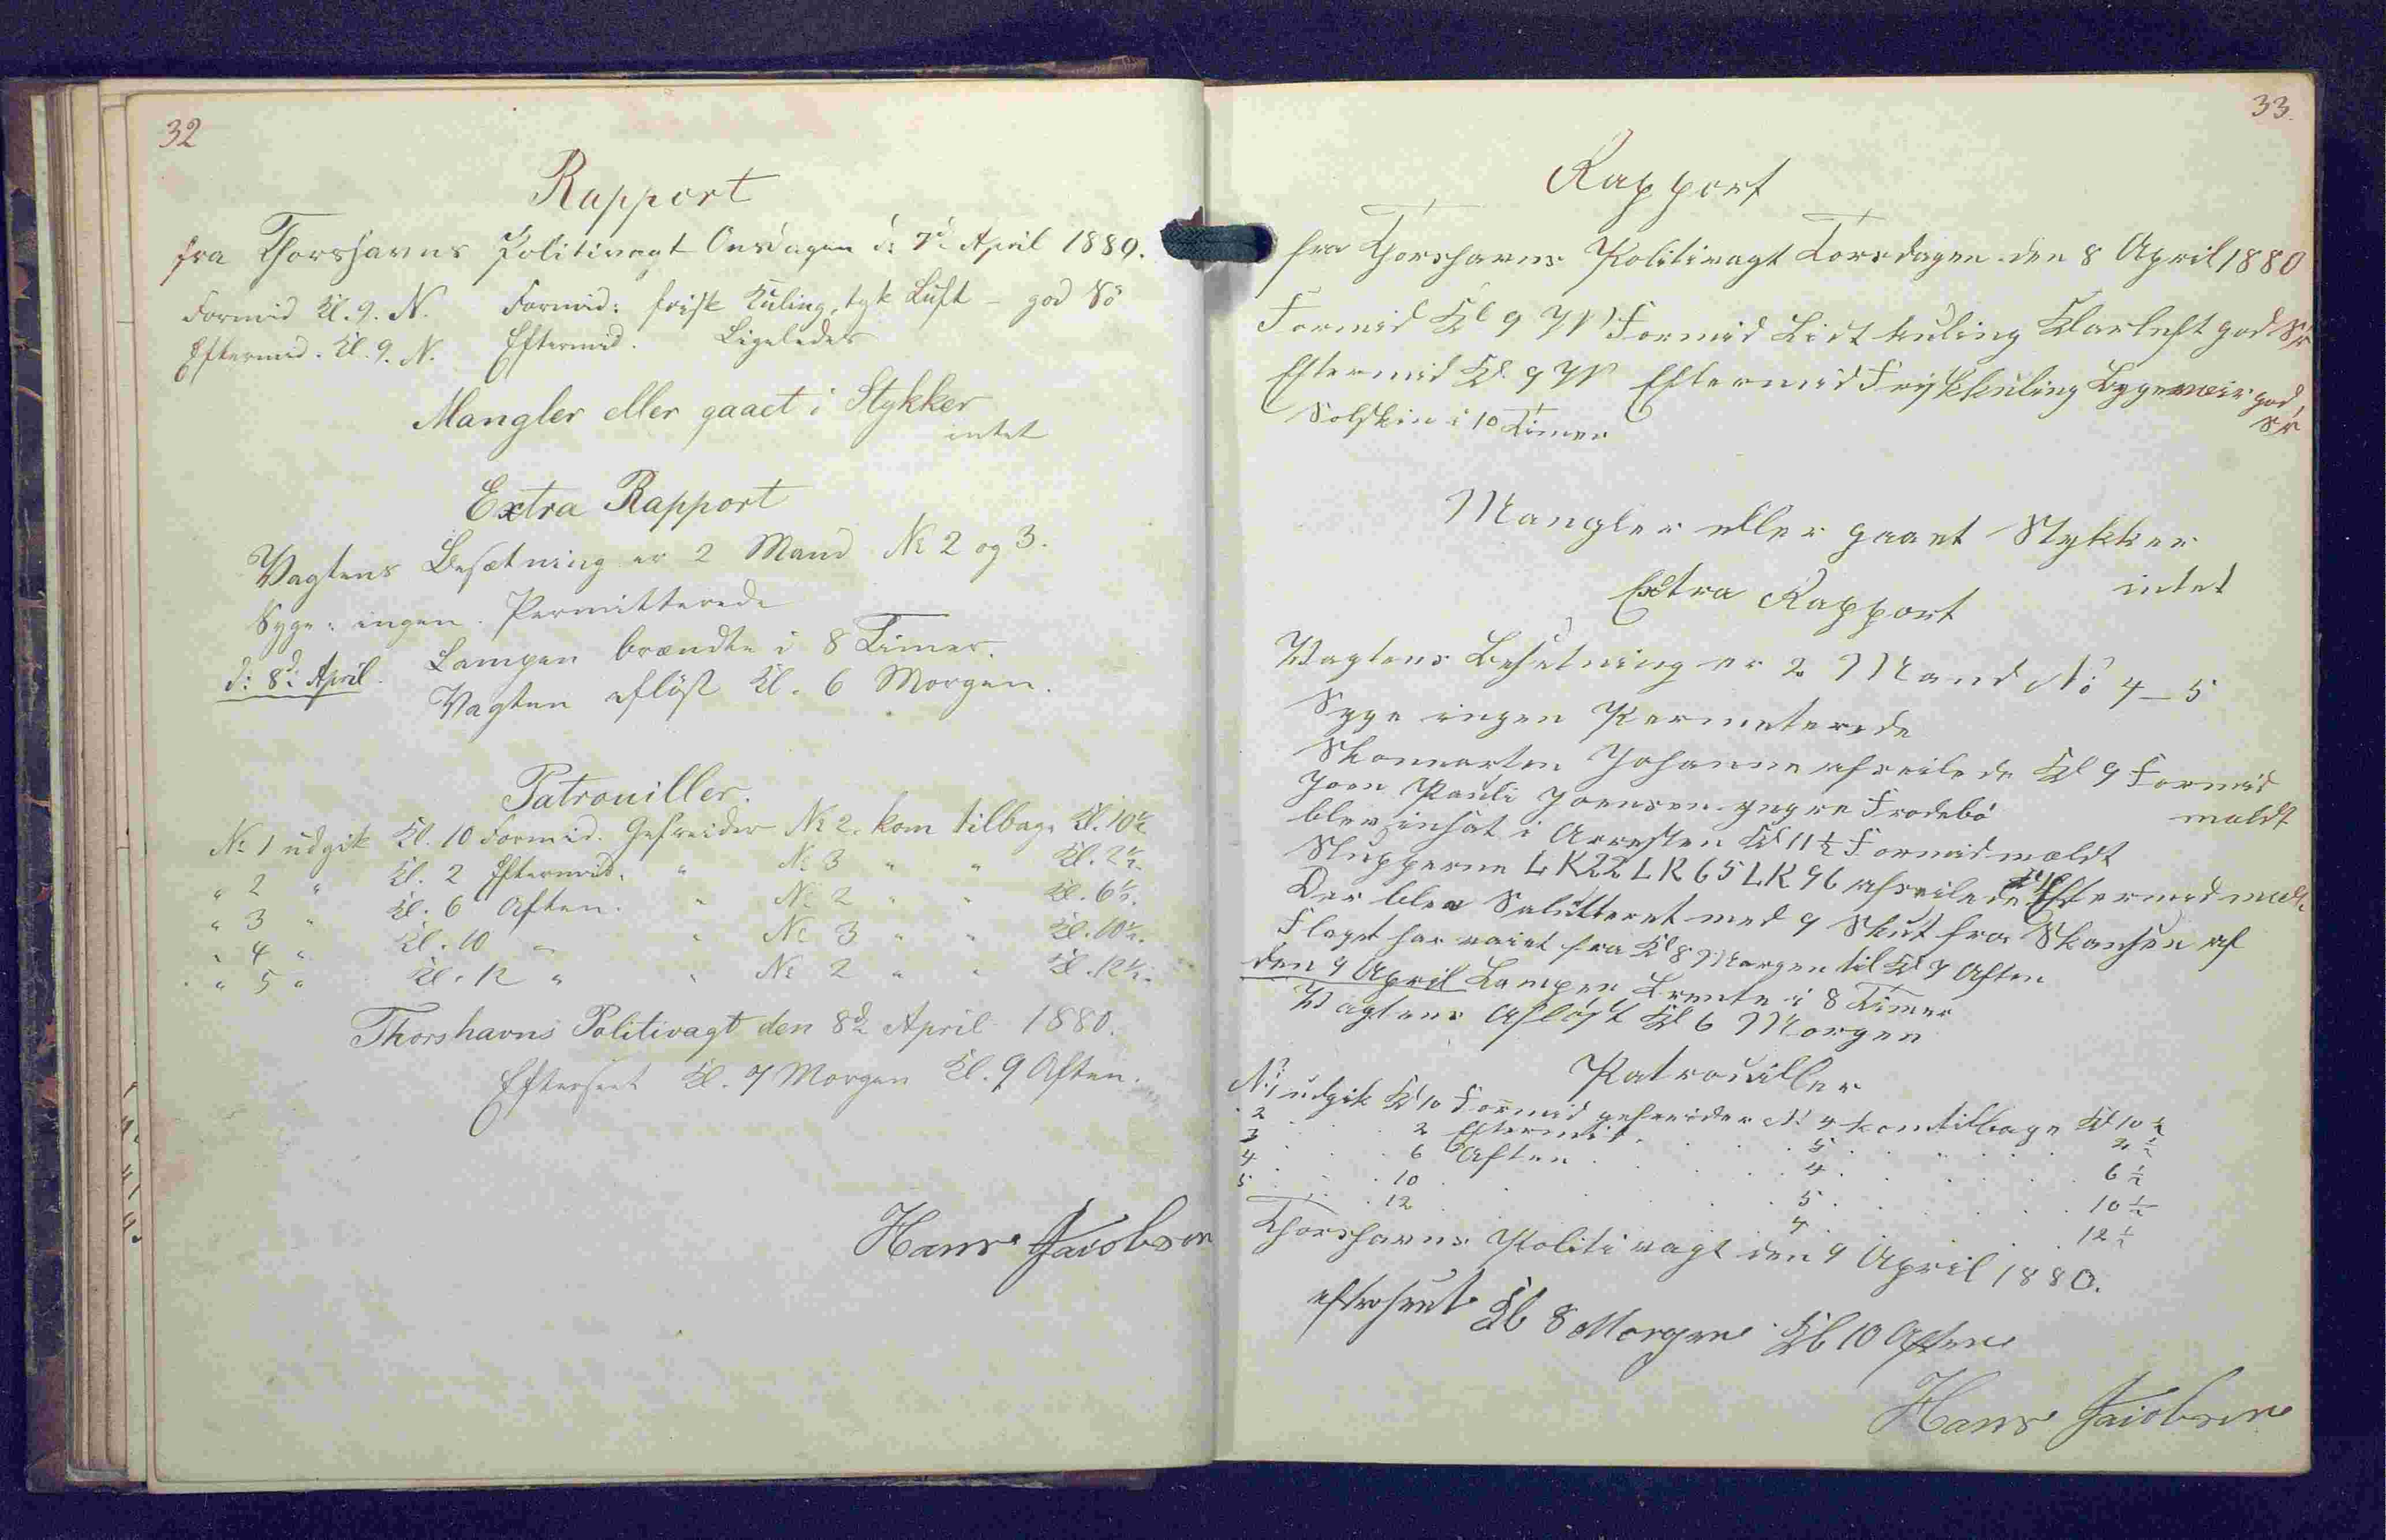 32
Rapport
fra Thorshavns Politivagt Onsdagen d: 7d: April 1880.
Formid Kl. 9. N. Formid: frisk Kuling, tyk Luft – god Sö
Eftermid. Kl. 9. N. Eftermid. Ligeledes
Mangler eller gaaet i Stykker
intet
Extra Rapport
Vagtens Besætning er 2 Mand No 2 og 3.
Syge: ingen. Permitterede
d: 8d: April. Lampen brændte i 8 Timer.
Vagten aflöst Kl. 6 Morgen.
Patrouiller.
No 1 udgik Kl. 10 Formid. Gefreider No 2. kom tilbage Kl. 10½
" 2 " Kl. 2 Eftermid. " No 3 " " Kl. 2½.
" 3 " Kl. 6 Aften. " No 2 " " Kl. 6½.
" 4 " Kl. 10 " " No 3 " " Kl. 10½.
" 5 " Kl. 12 " " No 2 " " Kl. 12½.
Thorshavns Politivagt den 8de April 1880.
Efterseet Kl. 7 Morgen Kl. 9 Aften.
Hans Jacobsen
33.
Rapport
fra Thorshavns Politivagt Torsdagen den 8 April 1880
Formid Kl 9 W Formid Lidt kuling Klarluft god Sö
Eftermid Kl. 9 W Eftermid Frisk kuling Bygeveir god
Sö
Solskin i 10 Timer
Mangler eller gaaet Stykker
intet
Extra Rapport
Vagtens Besetning er 2 Mand No 4–5
Syge ingen Permeterede
Skonnerten Johanne afseilede Kl 9 Formid
meldt
Joen Pauli Joensen yngre Frodebö
blev insat i Arresten Kl 11½ Formid mældt
Slupperne LK22 LK65 LK96 afseilede Eftermid
Der blev Salutteret med 9 Skut fra Skansen af
Flaget har vaiet fra Kl 8 Morgen til Kl 7 Aften
den 9 April Lampen Brente i 8 Timer
Vagtens Aflöst Kl 6 Morgen
Patrouiller
No 1 udgik Kl 10 Formid gefreider No 4 kom tilbage Kl 10½
2 . . . 2 Eftermid . . . 5 . . . 2½
3 . . . 6 Aften . . . 4 . . . 6½
4 . . . 10 . . . 5 . . . 10½
5 . . . 12 . . . 4 . . . 12½
Thorshavns Politivagt den 9 April 1880.
efterseet Kl 8 Morgen Kl 10 Aften
Hans Jacobsen